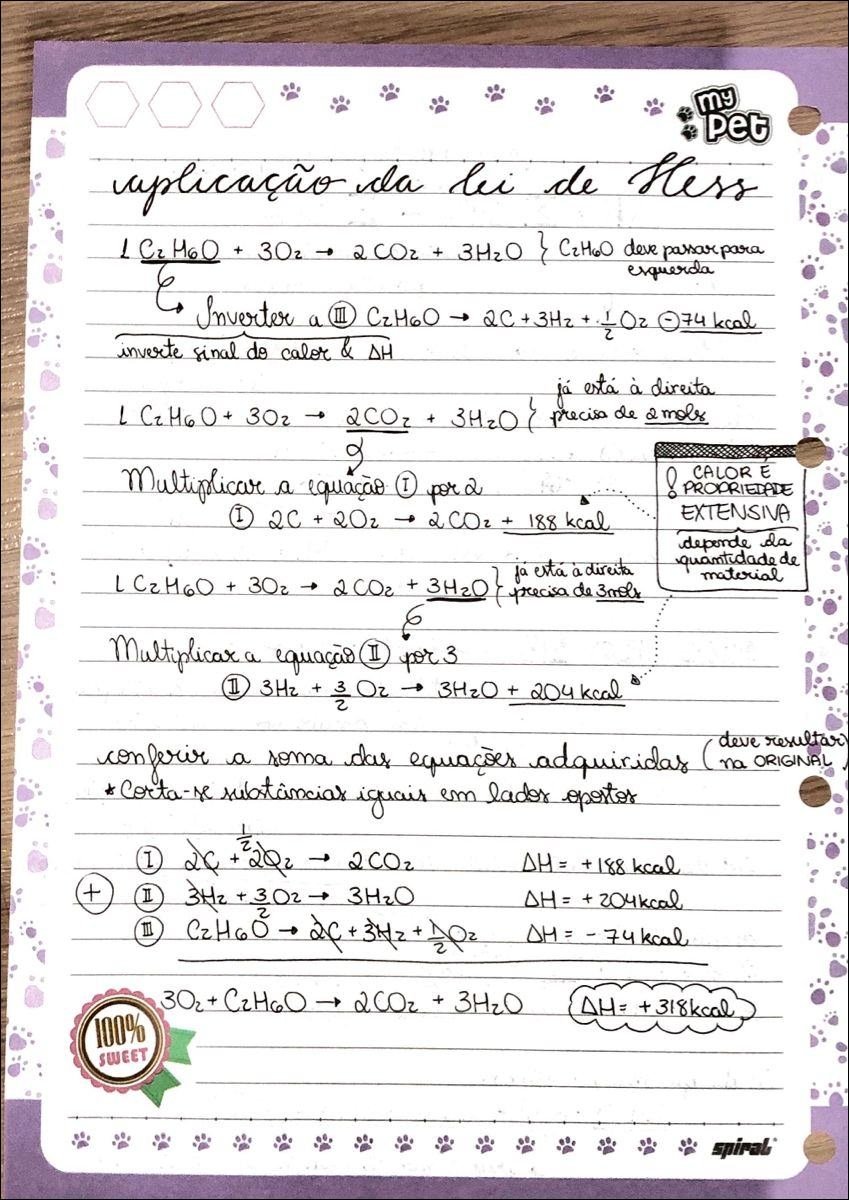 my
pet
aplicação da lei de Hess
1 C₂H₆O + 3O₂ → 2CO₂ + 3H₂O } C₂H₆O deve passar para
esquerda
Inverter a Ⅲ C₂H₆O → 2C + 3H₂ + 1/2 O₂ ⊖ 74 kcal
inverte sinal do calor & ΔH
já está à direita
1 C₂H₆O + 3O₂ → 2CO₂ + 3H₂O { precisa de 2 mols
Multiplicar a equação Ⅰ por 2
Ⅰ 2C + 2O₂ → 2CO₂ + 188 kcal
! CALOR É
PROPRIEDADE
EXTENSIVA
depende da
quantidade de
material
já está à direita
1 C₂H₆O + 3O₂ → 2CO₂ + 3H₂O } precisa de 3 mols
Multiplicar a equação Ⅱ por 3
Ⅱ 3H₂ + 3/2 O₂ → 3H₂O + 204 kcal
conferir a soma das equações adquiridas (deve resultar
na ORIGINAL)
* Corta-se substâncias iguais em lados opostos
1/2
Ⅰ 2C + 2O₂ → 2CO₂ ΔH = +188 kcal
+ Ⅱ 3H₂ + 3/2 O₂ → 3H₂O ΔH = +204 kcal
Ⅲ C₂H₆O → 2C + 3H₂ + 1/2 O₂ ΔH = -74 kcal
3O₂ + C₂H₆O → 2CO₂ + 3H₂O ΔH = +318 kcal
100%
SWEET
spiral